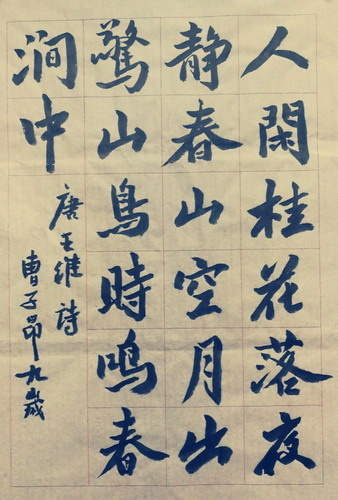 人閑桂花落夜
静春山空月出
驚山鳥時鳴春
澗中
唐王維詩
曹子昂九歲